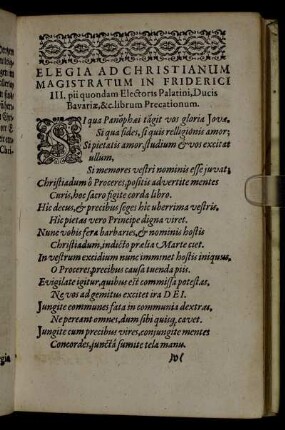 ELEGIA AD CHRISTIANUM
MAGISTRATUM IN FRIDERICI
III. pii quondam Electoris Palatini, Ducis
Bavariæ, &c. librum Precationum.
SI qua Panõphæi tãgit vos gloria Jovæ,
Si qua fides, si quis relligionis amor;
Si pietatis amor, studium & vos excitat
ullum,
Si memores vestri nominis esse juvat;
Christiadum ô Proceres, positis advertite mentes
Curis, hoc sacro figite corda libro.
Hic decus, & precibus seges hic uberrima vestris,
Hic pietas vero Principe digna viret.
Nunc vobis fera barbaries, & nominis hostis
Christiadum, indicto prælia Marte ciet.
In vestrum excidium nunc imminet hostis iniquus,
O Proceres, precibus causa tuenda piis.
Evigilate igitur, quibus est commissa potestas,
Ne vos ad gemitus excitet ira DEI.
Jungite communes fata in communia dextras,
Ne pereant omnes, dum sibi quisq, cavet.
Jungite cum precibus vires, conjungite mentes
Concordes, junctâ sumite tela manu.